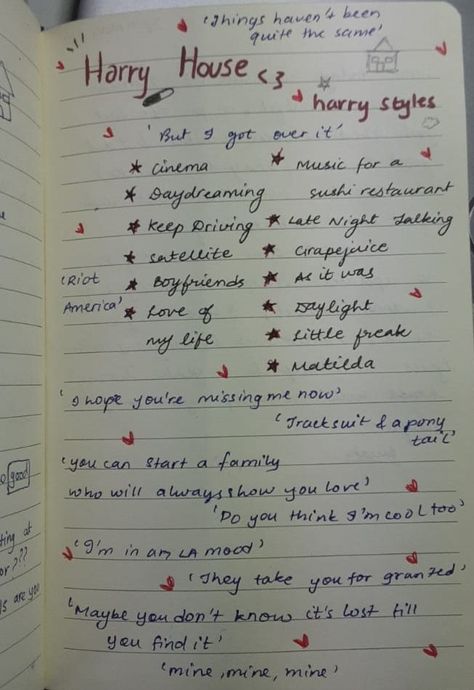 'Things haven't been
quite the same'
Harry House <3
harry styles
'But I got over it'
★ Cinema
★ Daydreaming
★ Keep Driving
★ satellite
★ Boyfriends
★ Love of
my life
★ Music for a
sushi restaurant
★ Late Night Talking
★ Grapejuice
★ As it was
★ Daylight
★ Little freak
★ Matilda
'Riot
America'
'I hope you're missing me now'
'Tracksuit & a pony
tail'
'you can start a family
who will always show you love'
'Do you think I'm cool too'
'I'm in an LA mood'
'They take you for granted'
'Maybe you don't know it's lost till
you find it'
'mine, mine, mine'
good
at
???
are you